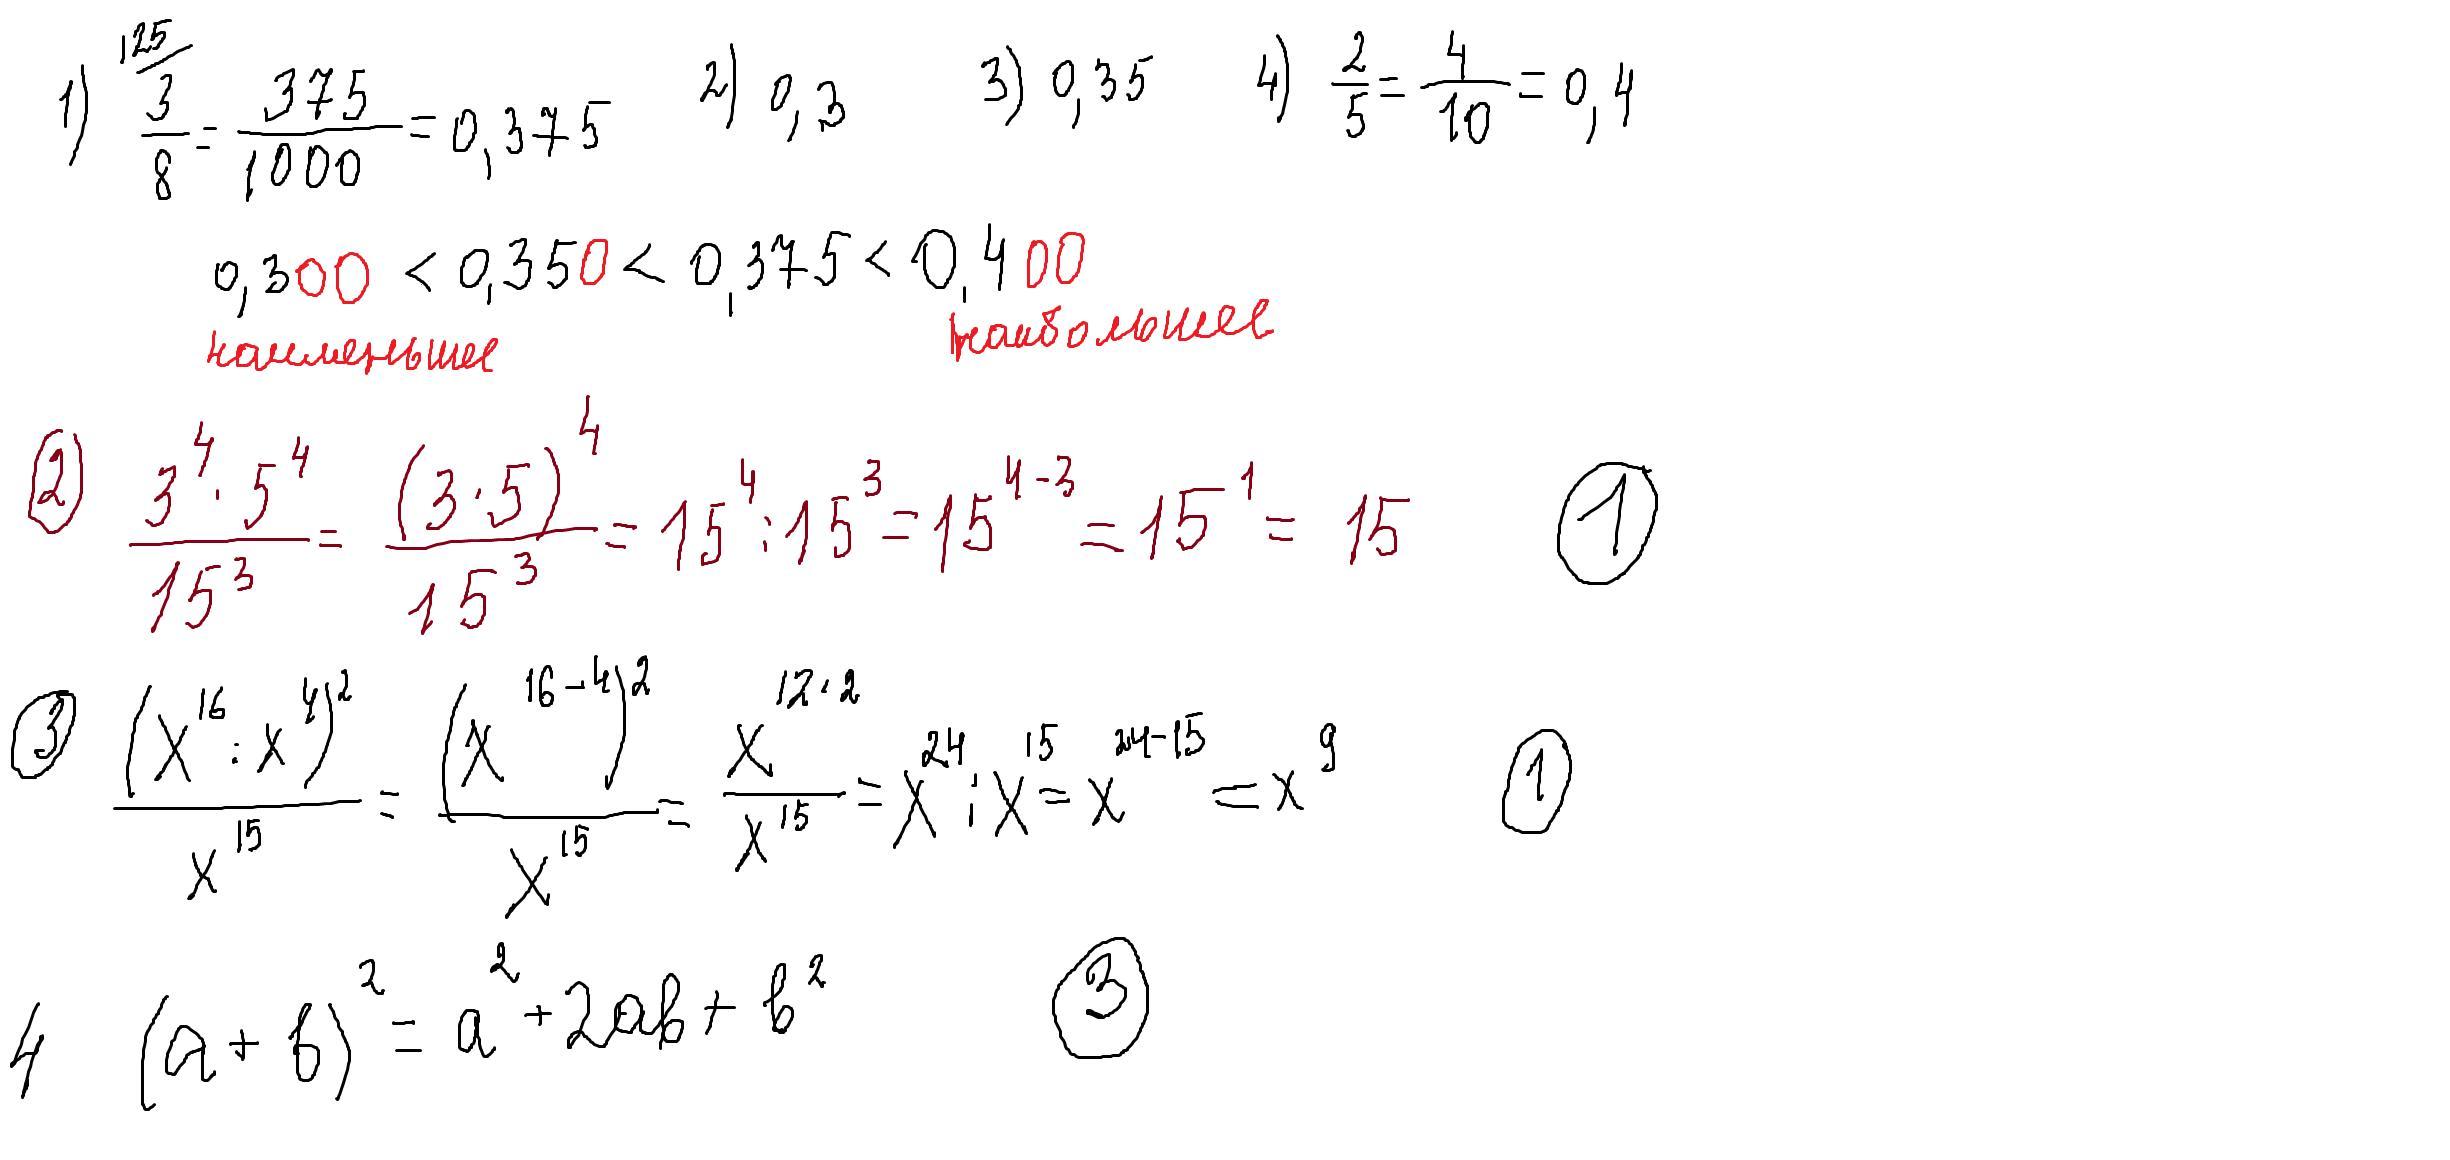 1) ¹²⁵/ 3/8 = 375/1000 = 0,375 2) 0,3 3) 0,35 4) 2/5 = 4/10 = 0,4
0,300 < 0,350 < 0,375 < 0,400
наименьшее наибольшее
② (3⁴ · 5⁴)/15³ = (3 · 5)⁴/15³ = 15⁴ : 15³ = 15⁴⁻³ = 15¹ = 15 ①
③ (x¹⁶ : x⁴)²/x¹⁵ = (x¹⁶⁻⁴)²/x¹⁵ = x¹²·²/x¹⁵ = x²⁴ : x¹⁵ = x²⁴⁻¹⁵ = x⁹ ①
4 (a + b)² = a² + 2ab + b² ③